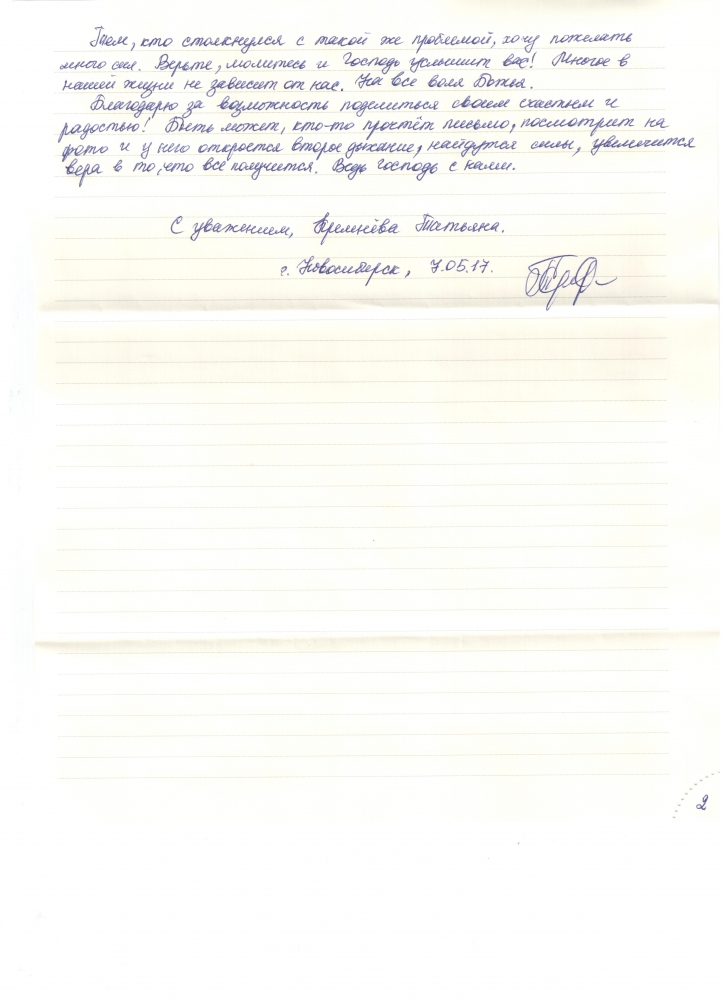 Тем, кто столкнулся с такой же проблемой, хочу пожелать
много сил. Верьте, молитесь и Господь услышит вас! Многое в
нашей жизни не зависит от нас. На всё воля Божья.
Благодарю за возможность поделиться своим счастьем и
радостью! Быть может, кто-то прочтёт письмо, посмотрит на
фото и у него откроется второе дыхание, найдутся силы, увеличится
вера в то, что всё получится. Ведь Господь с нами.
С уважением, Кремнёва Татьяна.
г. Новосибирск, 7.05.17.
2